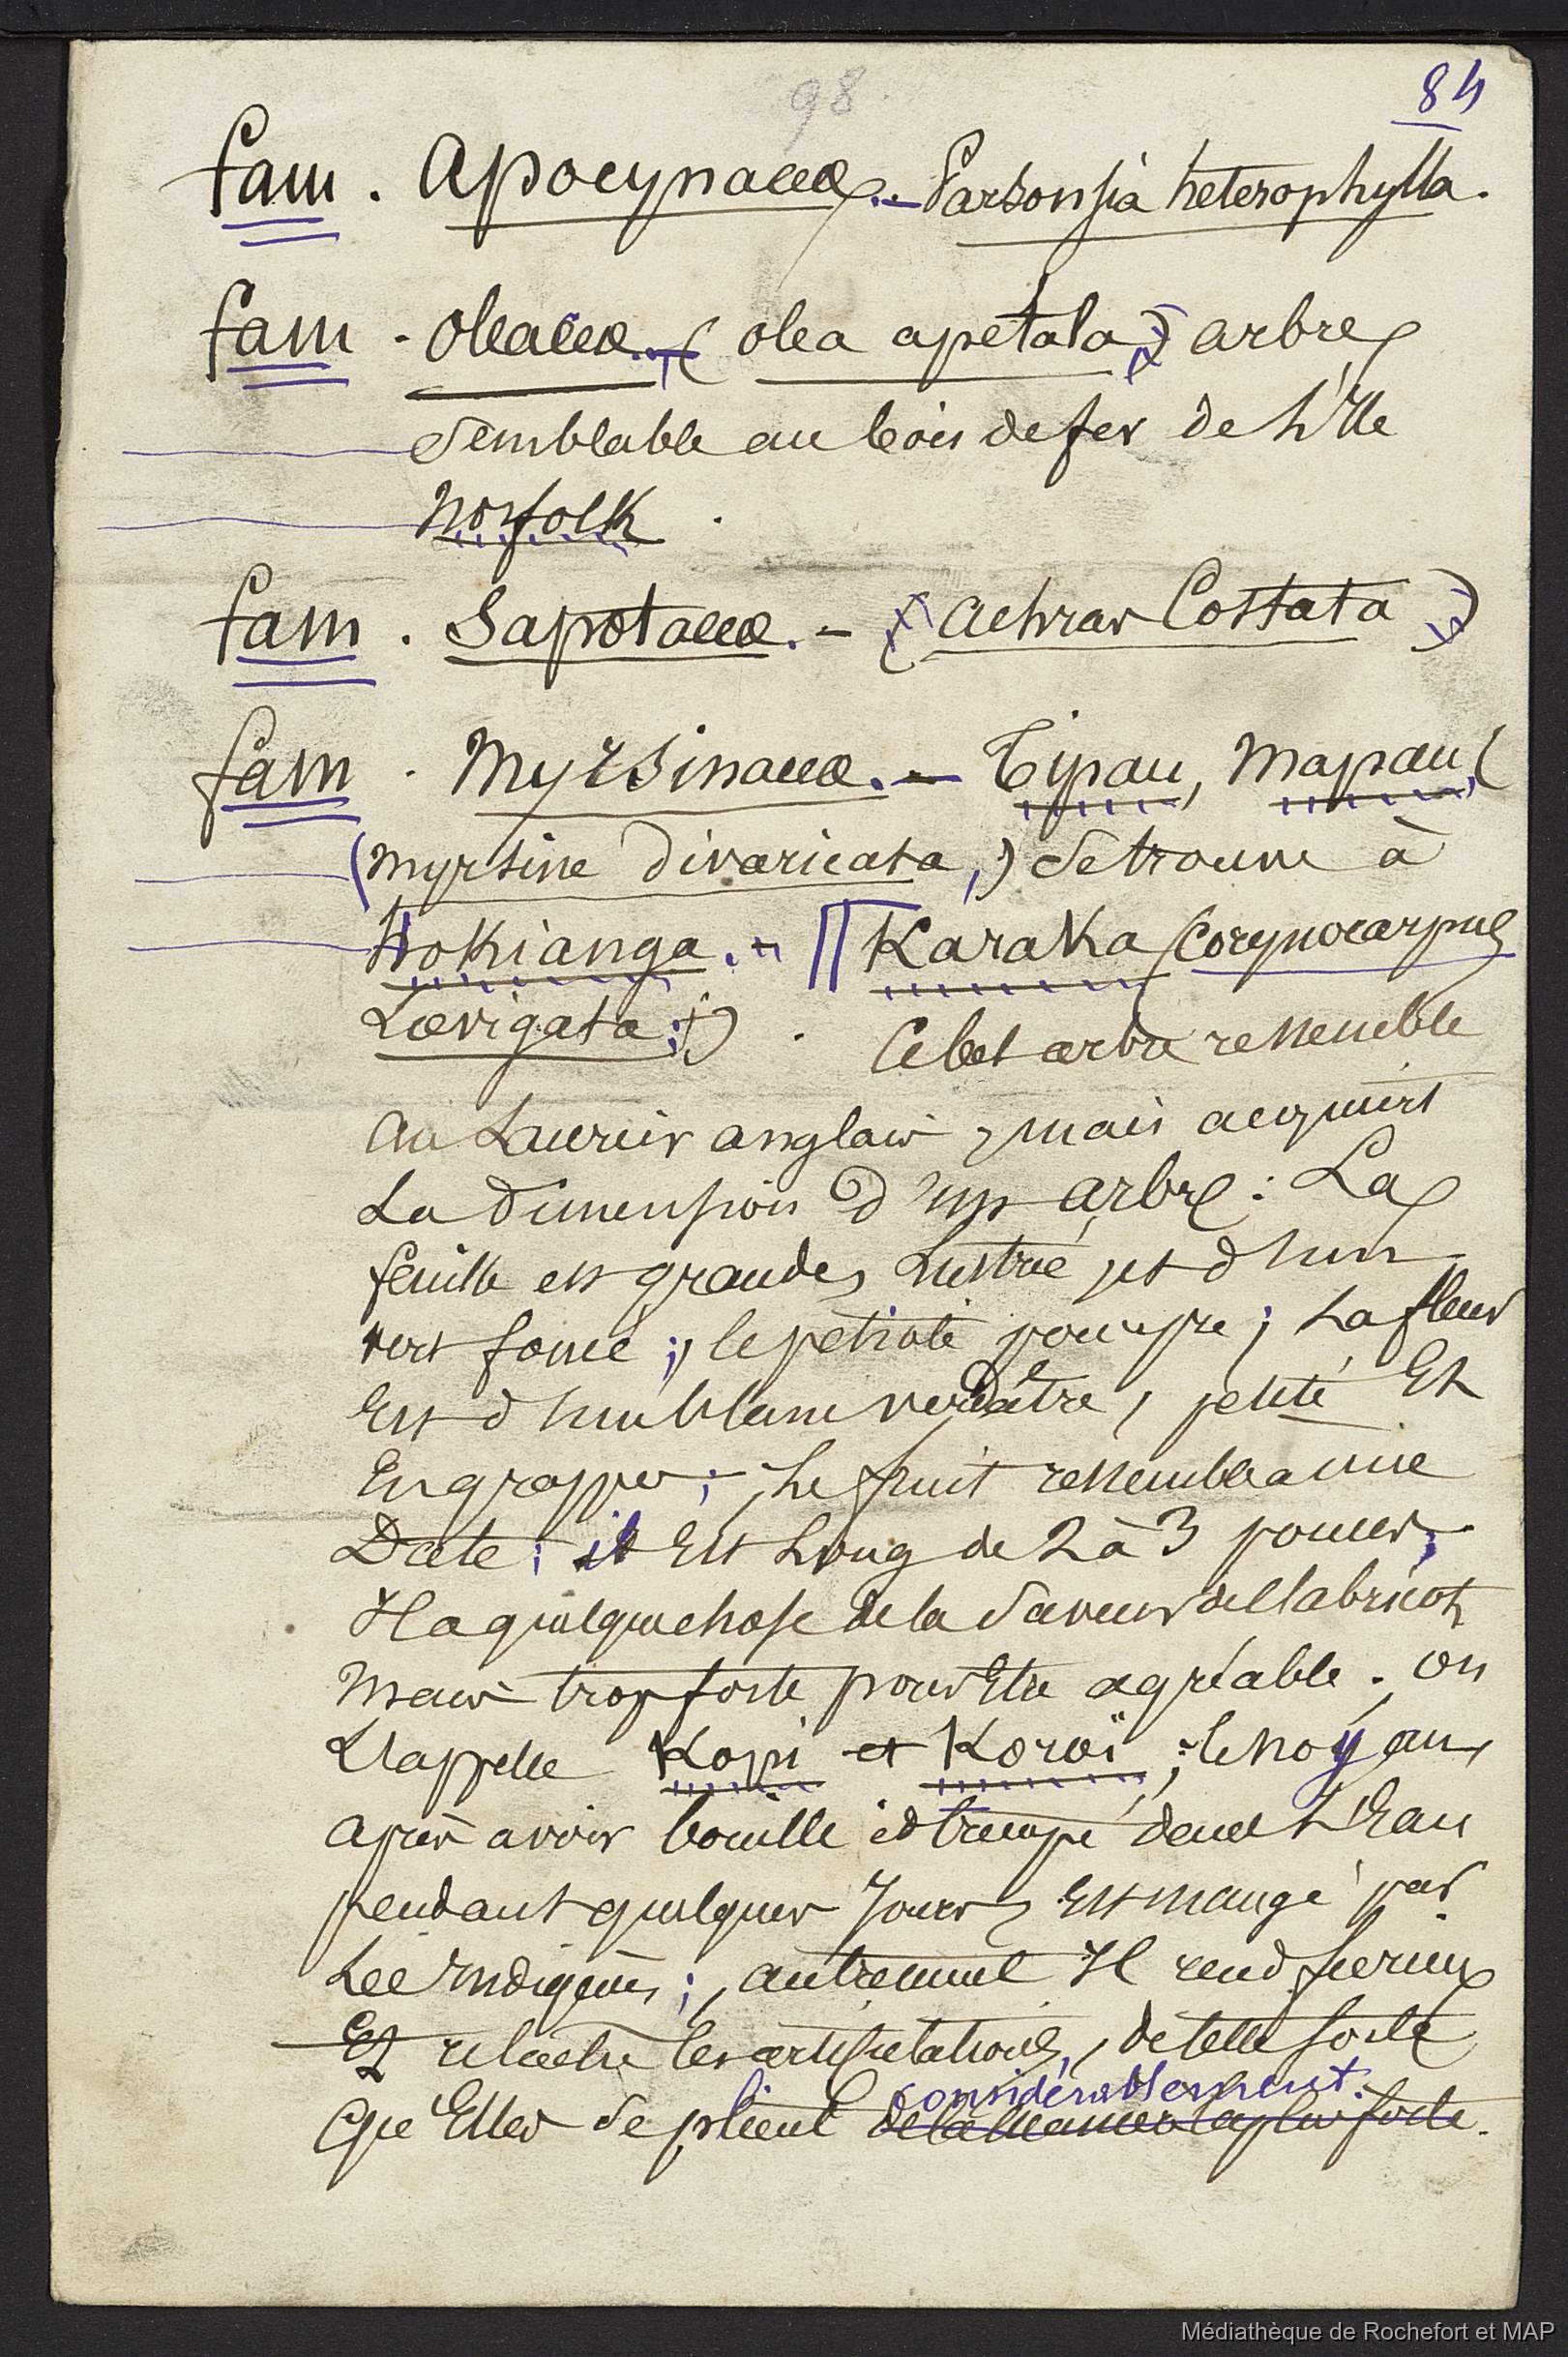 98
84
fam. Apocynaceæ.- Parsonsia heterophylla.
fam. Oleaceæ.- (olea apetala,) arbre
Semblable au bois de fer de L'Ile
Norfolk.
fam. Sapotaceæ.- (Achras Costata)
fam. Myrsinaceæ.- Tipau, Mapau,(
(Myrsine divaricata,) Se trouve à
Hokianga.- Karaka (Corynocarpus
Lœvigata;) . Ce bel arbre ressemble
Au Laurier anglais, mais acquiert
La dimension d'un arbre: La
feuille est grande, Lustré, et d'un
vert foncé; le pétiole pourpre; La fleur
Est d'un blanc verdâtre, petite Et
En grappes; Le fruit ressemble à une
Date; il Est Long de 2 à 3 pouces;
Il a quelque chose de la Saveur de l'abricot
Mais trop forte pour Etre agréable. On
L'appelle Kopi et Koroï; le noyau,
Après avoir bouilli et trempé dans L'Eau
pendant quelques Jours, Est mangé par
Les Indigènes; autrement Il rend furieux
Et relâche les articulations, de telle sorte
considérablement.
Que Elles se plient de la manière la plus forte.
Médiathèque de Rochefort et MAP